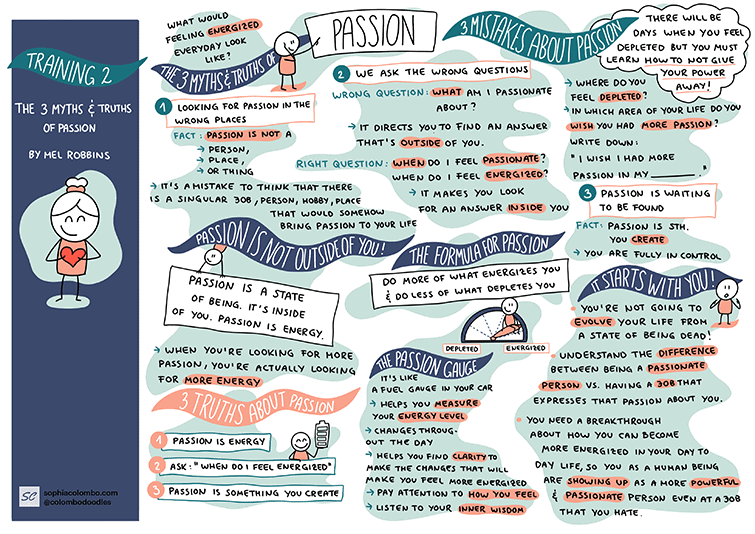 TRAINING 2
THE 3 MYTHS & TRUTHS
OF PASSION
BY MEL ROBBINS
SC
sophiacolombo.com
@colombodoodles
WHAT WOULD
FEELING ENERGIZED
EVERYDAY LOOK
LIKE?
THE 3 MYTHS & TRUTHS OF
PASSION
1 LOOKING FOR PASSION IN THE
WRONG PLACES
FACT: PASSION IS NOT A
→ PERSON,
→ PLACE,
→ OR THING
→ IT'S A MISTAKE TO THINK THAT THERE
IS A SINGULAR JOB, PERSON, HOBBY, PLACE
THAT WOULD SOMEHOW
BRING PASSION TO YOUR LIFE
2 WE ASK THE WRONG QUESTIONS
WRONG QUESTION: WHAT AM I PASSIONATE
ABOUT?
→ IT DIRECTS YOU TO FIND AN ANSWER
THAT'S OUTSIDE OF YOU.
RIGHT QUESTION: WHEN DO I FEEL PASSIONATE?
WHEN DO I FEEL ENERGIZED?
→ IT MAKES YOU LOOK
FOR AN ANSWER INSIDE YOU
3 MISTAKES ABOUT PASSION
THERE WILL BE
DAYS WHEN YOU FEEL
DEPLETED BUT YOU MUST
LEARN HOW TO NOT GIVE
YOUR POWER
AWAY!
→ WHERE DO YOU
FEEL DEPLETED?
→ IN WHICH AREA OF YOUR LIFE DO YOU
WISH YOU HAD MORE PASSION?
WRITE DOWN:
"I WISH I HAD MORE
PASSION IN MY ______."
3 PASSION IS WAITING
TO BE FOUND
FACT: PASSION IS STH.
YOU CREATE
→ YOU ARE FULLY IN CONTROL
PASSION IS NOT OUTSIDE OF YOU!
PASSION IS A STATE
OF BEING. IT'S INSIDE
OF YOU. PASSION IS ENERGY.
→ WHEN YOU'RE LOOKING FOR MORE
PASSION, YOU'RE ACTUALLY LOOKING
FOR MORE ENERGY
3 TRUTHS ABOUT PASSION
1 PASSION IS ENERGY
2 ASK: "WHEN DO I FEEL ENERGIZED"
3 PASSION IS SOMETHING YOU CREATE
THE FORMULA FOR PASSION
DO MORE OF WHAT ENERGIZES YOU
& DO LESS OF WHAT DEPLETES YOU
DEPLETED ENERGIZED
THE PASSION GAUGE
IT'S LIKE
A FUEL GAUGE IN YOUR CAR
→ HELPS YOU MEASURE
YOUR ENERGY LEVEL
→ CHANGES THROUG-
OUT THE DAY
→ HELPS YOU FIND CLARITY TO
MAKE THE CHANGES THAT WILL
MAKE YOU FEEL MORE ENERGIZED
→ PAY ATTENTION TO HOW YOU FEEL
→ LISTEN TO YOUR INNER WISDOM
IT STARTS WITH YOU!
• YOU'RE NOT GOING TO
EVOLVE YOUR LIFE FROM
A STATE OF BEING DEAD!
• UNDERSTAND THE DIFFERENCE
BETWEEN BEING A PASSIONATE
PERSON VS. HAVING A JOB THAT
EXPRESSES THAT PASSION ABOUT YOU.
• YOU NEED A BREAKTHROUGH
ABOUT HOW YOU CAN BECOME
MORE ENERGIZED IN YOUR DAY TO
DAY LIFE, SO YOU AS A HUMAN BEING
ARE SHOWING UP AS A MORE POWERFUL
& PASSIONATE PERSON EVEN AT A JOB
THAT YOU HATE.